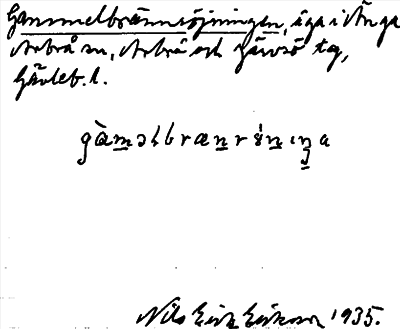 Gammelbrännröjningen, äga i Änga
Arbrå sn, Arbrå och Järvsö tg,
Gävleb. l.
gàmǝlbrænrö́nıŋa
Nils Erik Eriksson 1935.